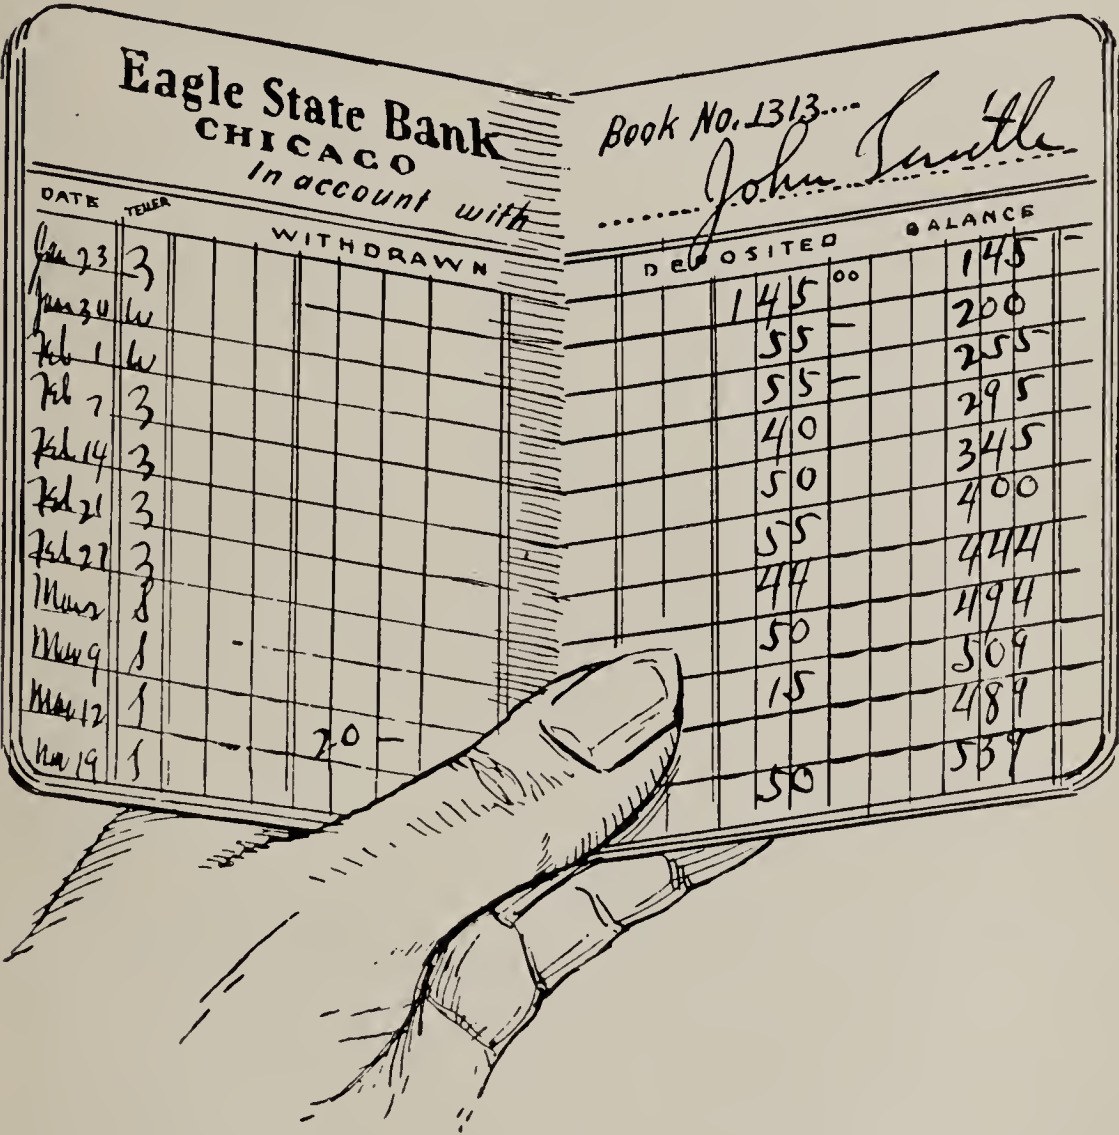 Eagle State Bank
CHICAGO
In account with
Book No. 1313....
John
DATE TELLER WITHDRAWN DEPOSITED BALANCE
Jan 23 3 145 00 145 –
Jan 30 W 55 – 200
Feb 1 W 55 – 255
Feb 7 3 40 295
Feb 14 3 50 345
Feb 21 3 55 400
Feb 27 3 44 444
Mar 2 50 494
Mar 9 15 509
Mar 12 20 – 489
Mar 19 50 539